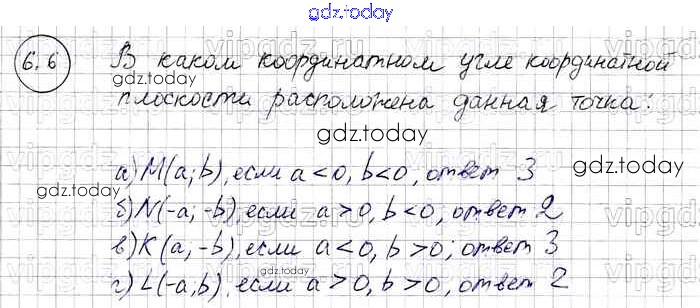 gdz.today
6.6 В каком координатном угле координатной
gdz.today
плоскости расположена данная точка:
gdz.today
а) M(a; b), если a<0, b<0, ответ 3
gdz.today
б) N(-a; -b), если a>0, b<0, ответ 2
в) K(a; -b), если a<0, b>0; ответ 3
gdz.today
г) L(-a, b), если a>0, b>0, ответ 2